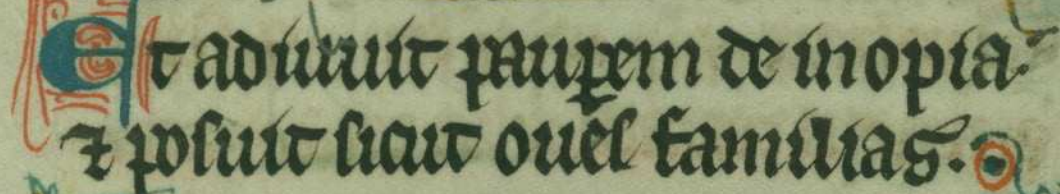 Et adiuuit pauꝑem de inopia.
⁊ posuit sicut oues familias.